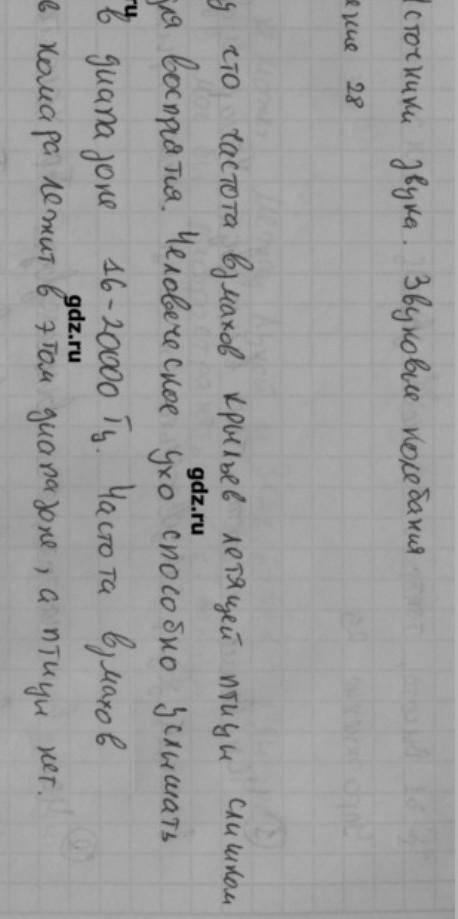 сточники звука. Звуковые колебания
ение 28
у что частота взмахов крыльев летящей птицы слишком
для восприятия. Человеческое ухо способно услышать
в диапазоне 16-20000 Гц. Частота взмахов
в комара лежит в этом диапазоне, а птицы нет.
gdz.ru
gdz.ru
ru